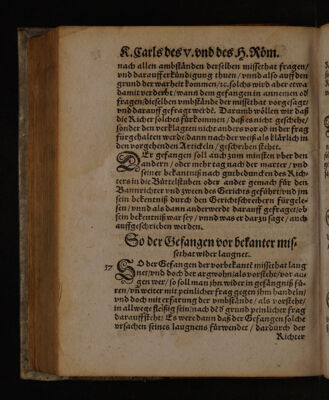 K. Carls des v. vnd des H. Röm.
nach allen vmbständen derselben missethat fragen/
vnd darauff erkündigung thuen / vnnd also auff den
grund der warheit kommen / ec. solchs wird aber etwa
damit verderbt / wann den gefangen in annemen oder
fragen / dieselben vmbstände der missethat vorgesagt /
vnd darauff gefragt werdē. Darumb wöllen wir daß
die Richer solches fürkommen / daß es nicht geschehe /
sonder den verklagten nicht anders vor oder in der frag
fürgehalten werde / dann nach der weiß als klärlich in
den vorgehenden Artickeln / geschrieben stehet.
DEr gefangen soll auch zum minsten vber den
andern / oder mehr tag nach der marter / vnd
seiner bekantnuß nach gutbeduncken des Rich
ters in die Büttelstuben oder ander gemach für den
Bannrichter vnd zween des Gerichts geführt / vnd jm
sein bekentnuß durch den Gerichtschreibern fürgele-
sen / vnnd als dann anderwerde darauff gefraget / ob
sein bekentnuß war sey / vnnd was er darzu sage / auch
auffgeschrieben werden.
So der Gefangen vor bekanter mis-
sethat wider laugnet.
57
SO der Gefangen der vorbekant missethat laug
net / vnd doch der argwohn / als vorsteht / vor au-
gen wer / so soll man jhn wider in gefängnuß fü-
ren / vn̄ weiter mit peinlicher frag gegen jhm handeln /
vnd doch mit erfarung der vmbstände / als vorsteht /
in allwege fleissig sein / nach dē d̓ grund peinlicher frag
darauff steht / Es were dann daß der Gefangen solche
vrsachen seines laugnens fürwendet / dardurch der
Richter